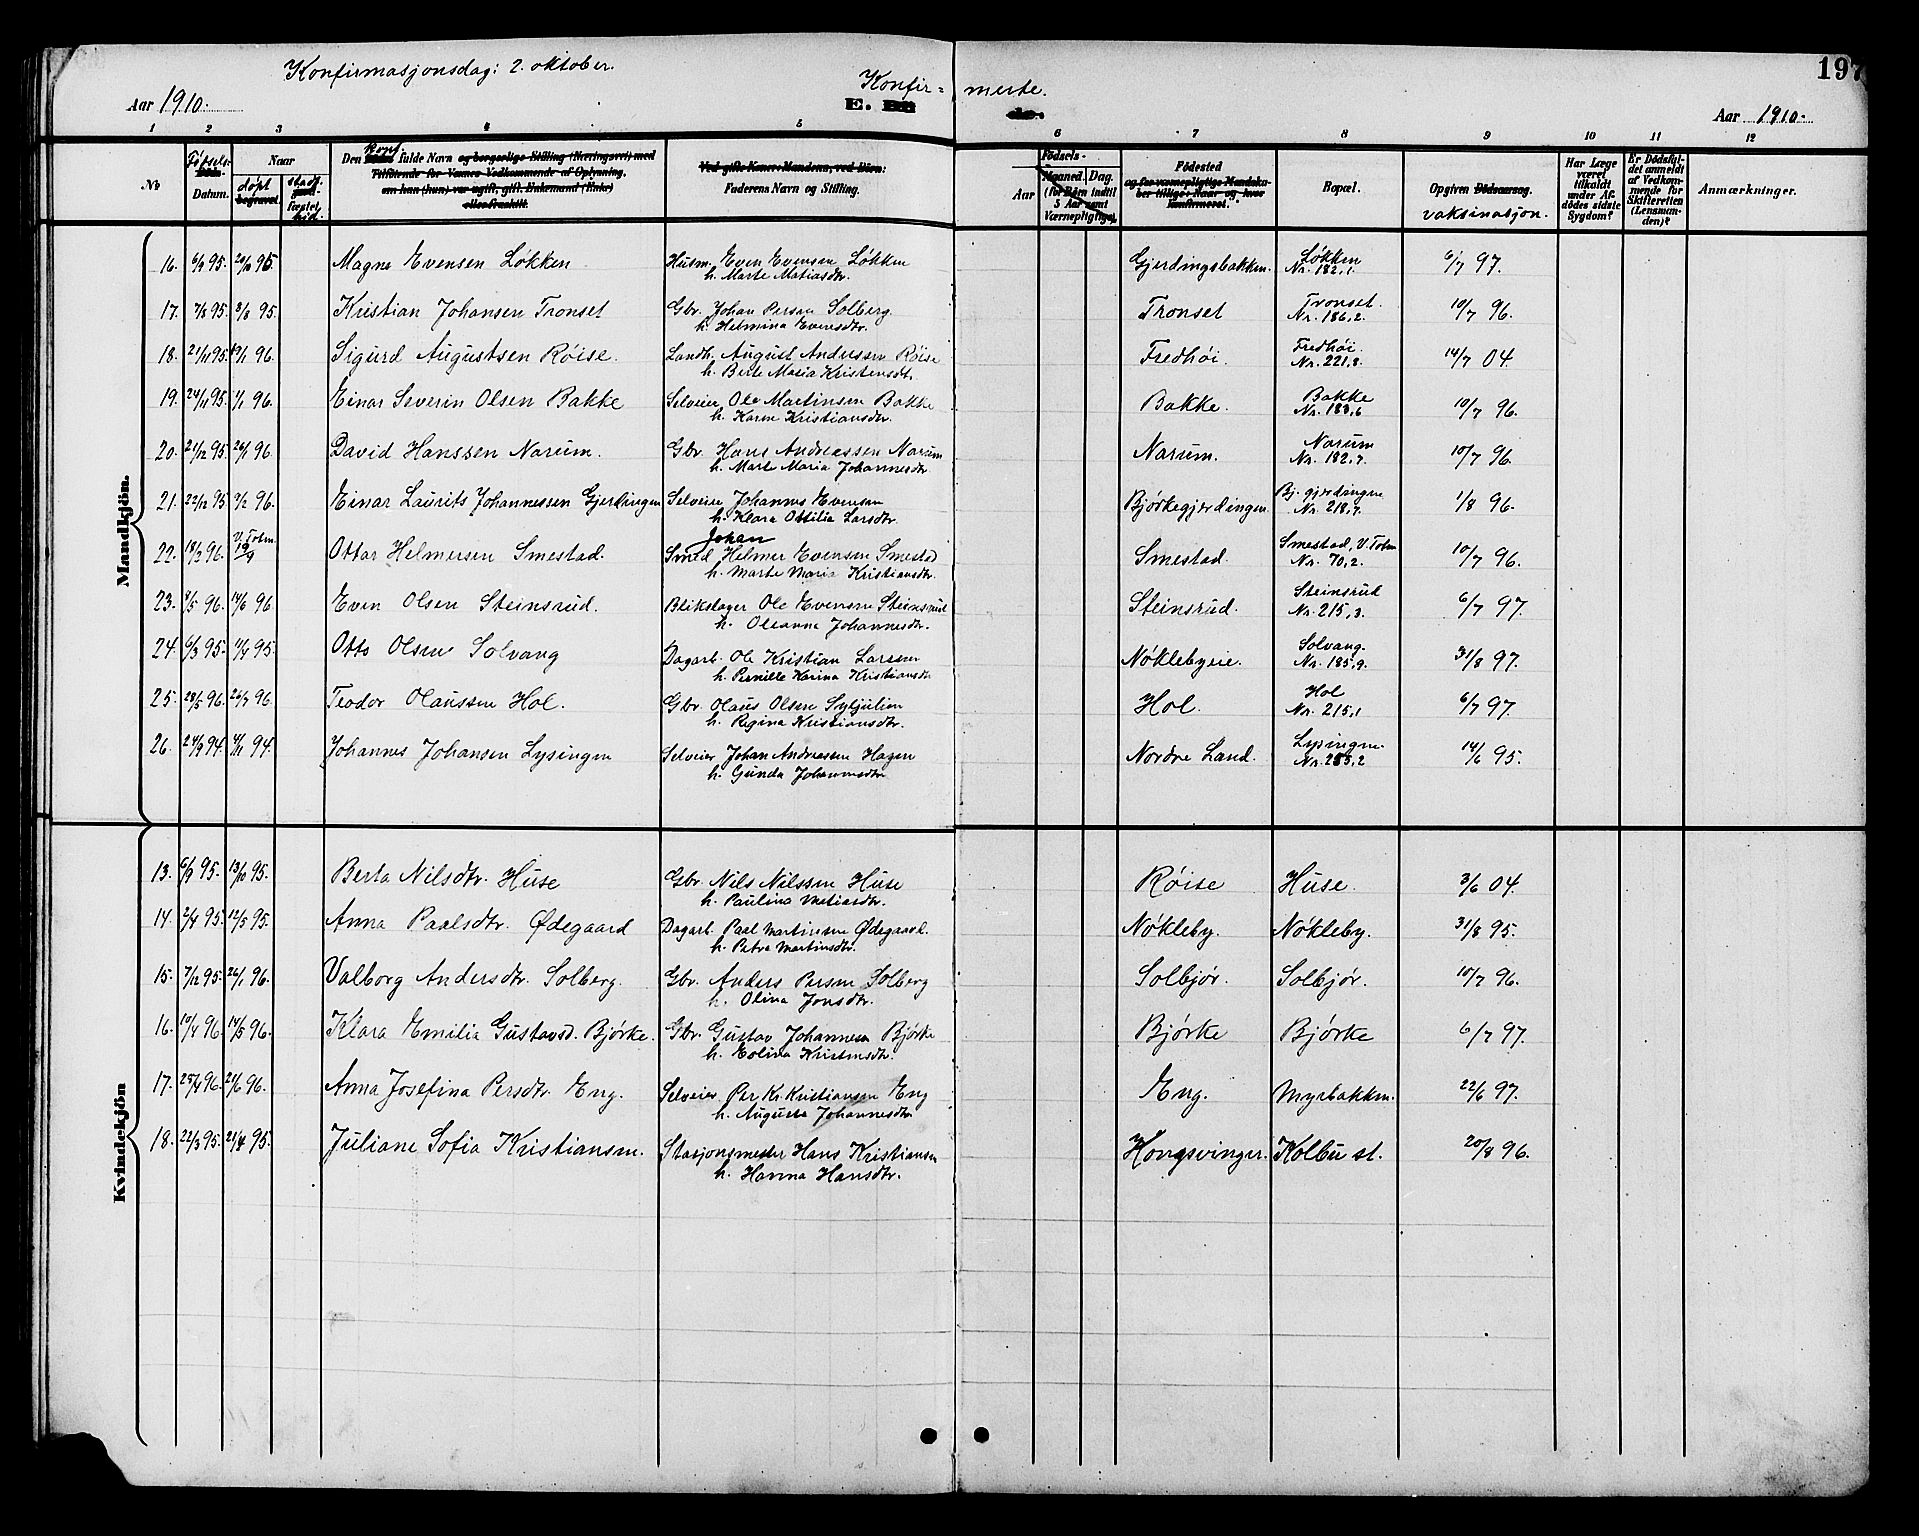 Konfirmasjonsdag: 2. oktober.
197
Aar 1910.
Konfir= merte.
E.
Aar 1910.
1 2 3 4 5 6 7 8 9 10 11 12
No
Fødsels-
Datum.
Naar
døpt
begravet
stadf. hid.
Den Konf. fulde Navn og borgerlige Stilling (Næringsvei) med
Tilføiende for Voxnes Vedkommende af Oplysning,
om han (hun) var ugift, gift, Enkemand (Enke)
eller fraskilt.
Ved gifte Koner: Mandens, ved Børn:
Faderens Navn og Stilling.
Fødsels-
Aar
Maaned. Dag.
(for Børn indtil
5 Aar samt
Værnepligtige)
Fødested
og for værnepligtige Mandska-
ber tillige: Naar og hvor
konfirmeret.
Bopæl.
Opgiven Dødsaarsag.
vaksinasjon.
Har Læge
været
tilkaldt
under Af-
dødes sidste
Sygdom?
Er Dødsfal-
det anmeldt
af Vedkom-
mende for
Skifteretten
(Lensman-
den)?
Anmærkninger.
Mandkjön.
16. 6/9 95. 20/10 95. Magne Evensen Løkken Husm. Even Evensen Løkken Gjerdingsbakken. Løkken 6/7 97.
h. Marte Matiasdtr. Nr. 182,1.
17. 7/8 95. Kristian Johansen Tronset Gbr. Johan Persen Solberg Tronset Tronset. 10/7 96.
h. Helmina Evensdtr. Nr. 186,2.
18. 21/11 95. 19/1 96. Sigurd Augustsen Røise. Landh. August Andersen Røise Fredhøi. Fredhøi. 14/7 04.
h. Berte Maria Kristensdt. Nr. 221,8.
19. 24/11 95. 1/1 96. Einar Severin Olsen Bakke Selveier Ole Martinsen Bakke Bakke. Bakke 10/7 96.
h. Karen Kristiansdtr. Nr. 183,6
20. 21/12 95. 26/1 96. David Hanssen Narum. Gbr. Hans Andreassen Narum Narum. Narum 10/7 96.
h. Marte Maria Johannesdtr. Nr. 182,7.
21. 22/12 95. 9/2 96. Einar Laurits Johannessen Gjerdingen Selveier Johannes Evensen Bjørkegjerdingen. Bj. gjerdingen 1/8 96.
h. Klara Ottilia Larsdtr. Nr. 218,7.
V. Totn. Johan
22. 18/3 96. 19/4 Ottar Helmersen Smestad. Smed Helmer Evensen Smestad Smestad. Smestad, V. Totn 10/7 96.
h. Marte Maria Kristiansdtr. Nr. 70,2.
23. 9/5 96. 14/6 96. Even Olsen Steinsrud. Blikslager Ole Evensen Steinsrud Steinsrud. Steinsrud 6/7 97.
h. Oleanne Johannesdtr. Nr. 215,3.
24. 6/3 95. 11/4 95. Otto Olsen Solvang Dagarb. Ole Kristian Larsen Nøklebyeie. Solvang. 31/8 97.
h. Pernille Karina Kristiansdtr Nr. 185,9.
25. 28/5 96. 26/7 96. Teodor Olaussen Hol. Gbr. Olaus Olsen Syljulien Hol. Hol 6/7 97.
h. Regina Kristiansdtr. Nr. 215,1
26. 24/9 94. 4/11 94. Johannes Johansen Lysingen Selveier Johan Andreassen Hagen Nordre Land. Lysingen. 14/6 95.
h. Gunda Johannesdtr Nr. 285,2
Kvindekjön
13. 6/9 95. 13/10 95. Berta Nilsdtr. Huse Gbr. Nils Nilssen Huse Røise Huse. 3/6 04.
h. Paulina Matiasdtr.
14. 2/4 95. 12/5 95. Anna Paalsdtr. Ødegaard Dagarb. Paal Martinsen Ødegaard. Nøkleby. Nøkleby. 31/8 95.
h. Petra Martinsdtr.
15. 7/12 95. 26/1 96. Valborg Andersdtr. Solberg. Gbr. Anders Persen Solberg Solbjør. Solbjør. 10/7 96.
h. Olina Jonsdtr.
16. 10/4 96. 14/5 96. Klara Emilia Gustavsd. Bjørke. Gbr. Gustav Johannesen Bjørke Bjørke Bjørke 6/7 97.
h. Eolina Kristensdtr.
17. 25/4 96. 21/6 96. Anna Josefina Persdtr. Eng. Selveier Per Kr. Kristiansen Eng Eng. Myrbakken. 22/6 97.
h. Augusta Johannesdtr
18. 22/3 95. 21/4 95. Juliane Sofia Kristiansen. Stasjonsmester Hans Kristiansen Kongsvinger. Kolbu st. 20/8 96.
h. Hanna Hansdtr.